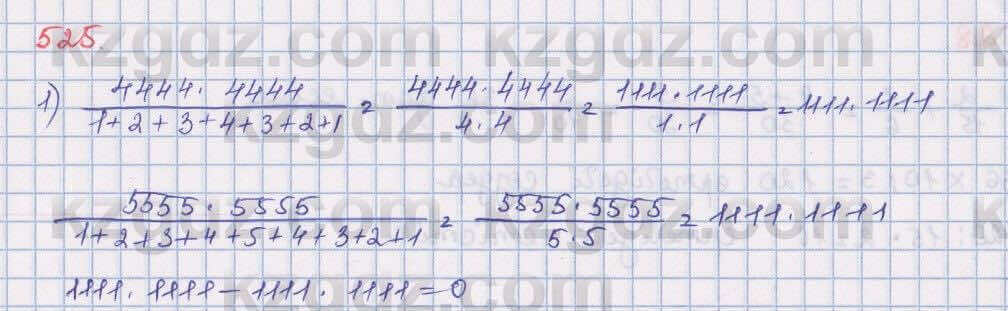 525.
1) 4444 · 4444 / 1+2+3+4+3+2+1 = 4444 · 4444 / 4 · 4 = 1111 · 1111 / 1 · 1 = 1111 · 1111
5555 · 5555 / 1+2+3+4+5+4+3+2+1 = 5555 · 5555 / 5 · 5 = 1111 · 1111
1111 · 1111 - 1111 · 1111 = 0